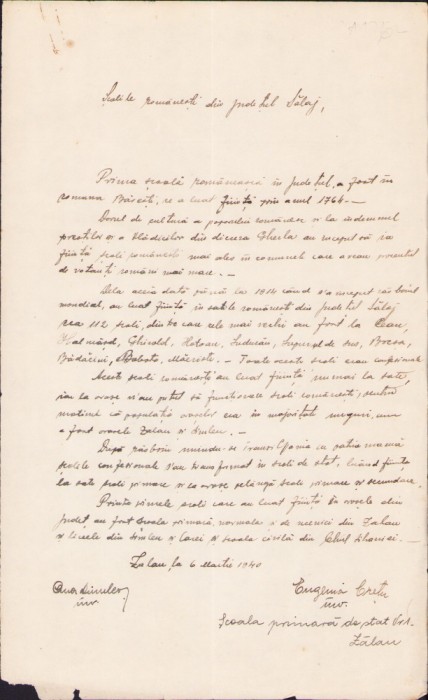 Școlile românești din județul Sălaj,
Prima școală românească în județul, a fost în
comuna Băsești, ce a luat ființă prin anul 1764.—
Dorul de cultură a poporului românesc și la indemnul
preoților și a Vlădicilor din dieceza Gherla au inceput să ia
ființă școli românești mai ales în comunele care aveau procentul
de români mai mare.—
Dela aceia dată până la 1914 când s'a inceput răsboiul
mondial, au luat ființă in satele românești din județul Sălaj
112 școli, dintre care cele mai vechi au fost la
Supurul de sus,
Bădăcini, Bobota, — Toate aceste școli erau confesionale
Aceste școli românești au luat ființă numai la sate,
iar la orașe n'au putut să funcționeze școli românești, pentru
motivul că populația orașelor era in majoritate unguri, cum
a fost orașele Zalau și Șimleu.—
După răsboiu unindu-se Transilvania cu patria mumă
școlile confesionale s'au transformat în școli de stat, luând ființă
la sate școli primare și la orașe pelângă școli primare și secundare.
Printre primele școli care au luat ființă în orașele din
județ au fost Școala primară, normala și de meserii din Zalau
și liceele din Șimleu și Carei și școala civilă din Cehul Silvaniei.—
Zalau la 6 Martie 1940
înv.
Eugenia Crețu
înv.
Școala primară de stat Nr 1.
Zălau